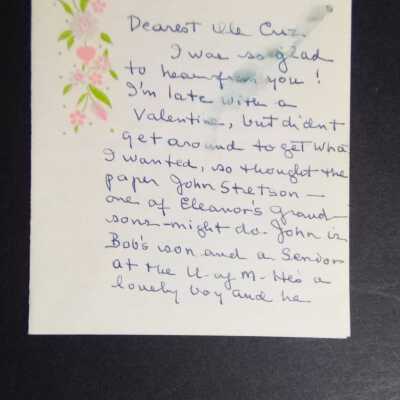 Dearest Cuz.
I was so glad
to hear from you!
I'm late with a
Valentine, but didn't
get around to get what
I wanted, so thought the
paper John Stetson —
one of Eleanor's grand-
sons - might do. John is
Bob's son and a Senior
at the U. of M. He's a
lovely boy and he